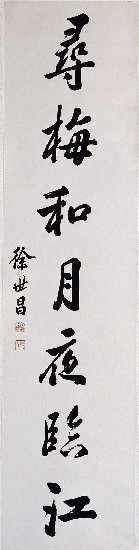 尋梅和月夜臨江
徐世昌